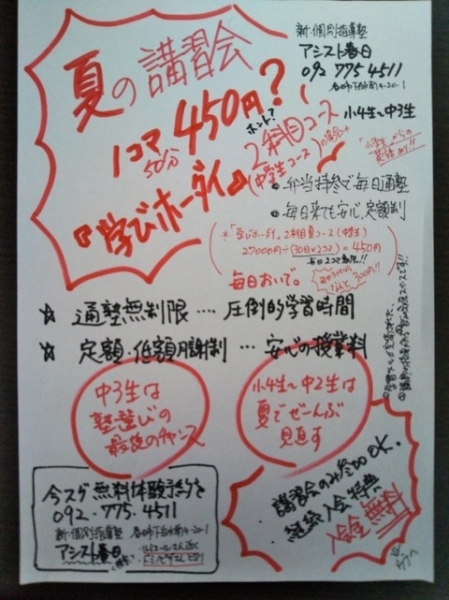 夏の講習会
1コマ 450円?!
50分 ホント?
2科目コース
(中学生コース)の場合
『学びホーダイ』
新・個別指導塾
アシスト春日
092 775 4511
小4生〜中3生
弁当持参で毎日通塾
毎日来ても安心、定額制
※「学びホーダイ」2科目夏コース(中学生)
27000円÷(30日×2コマ)=450円
毎日おいで。
☆ 通塾無制限 … 圧倒的学習時間
☆ 定額・低額月謝制 … 安心の授業料
中3生は
塾選びの
最後のチャンス
小4生〜中2生は
夏でぜーんぶ
見直す
・講習会のみ参加OK.
・継続入会特典
入会金無料
今スグ無料体験予約を
092・775・4511
新・個別指導塾
アシスト春日